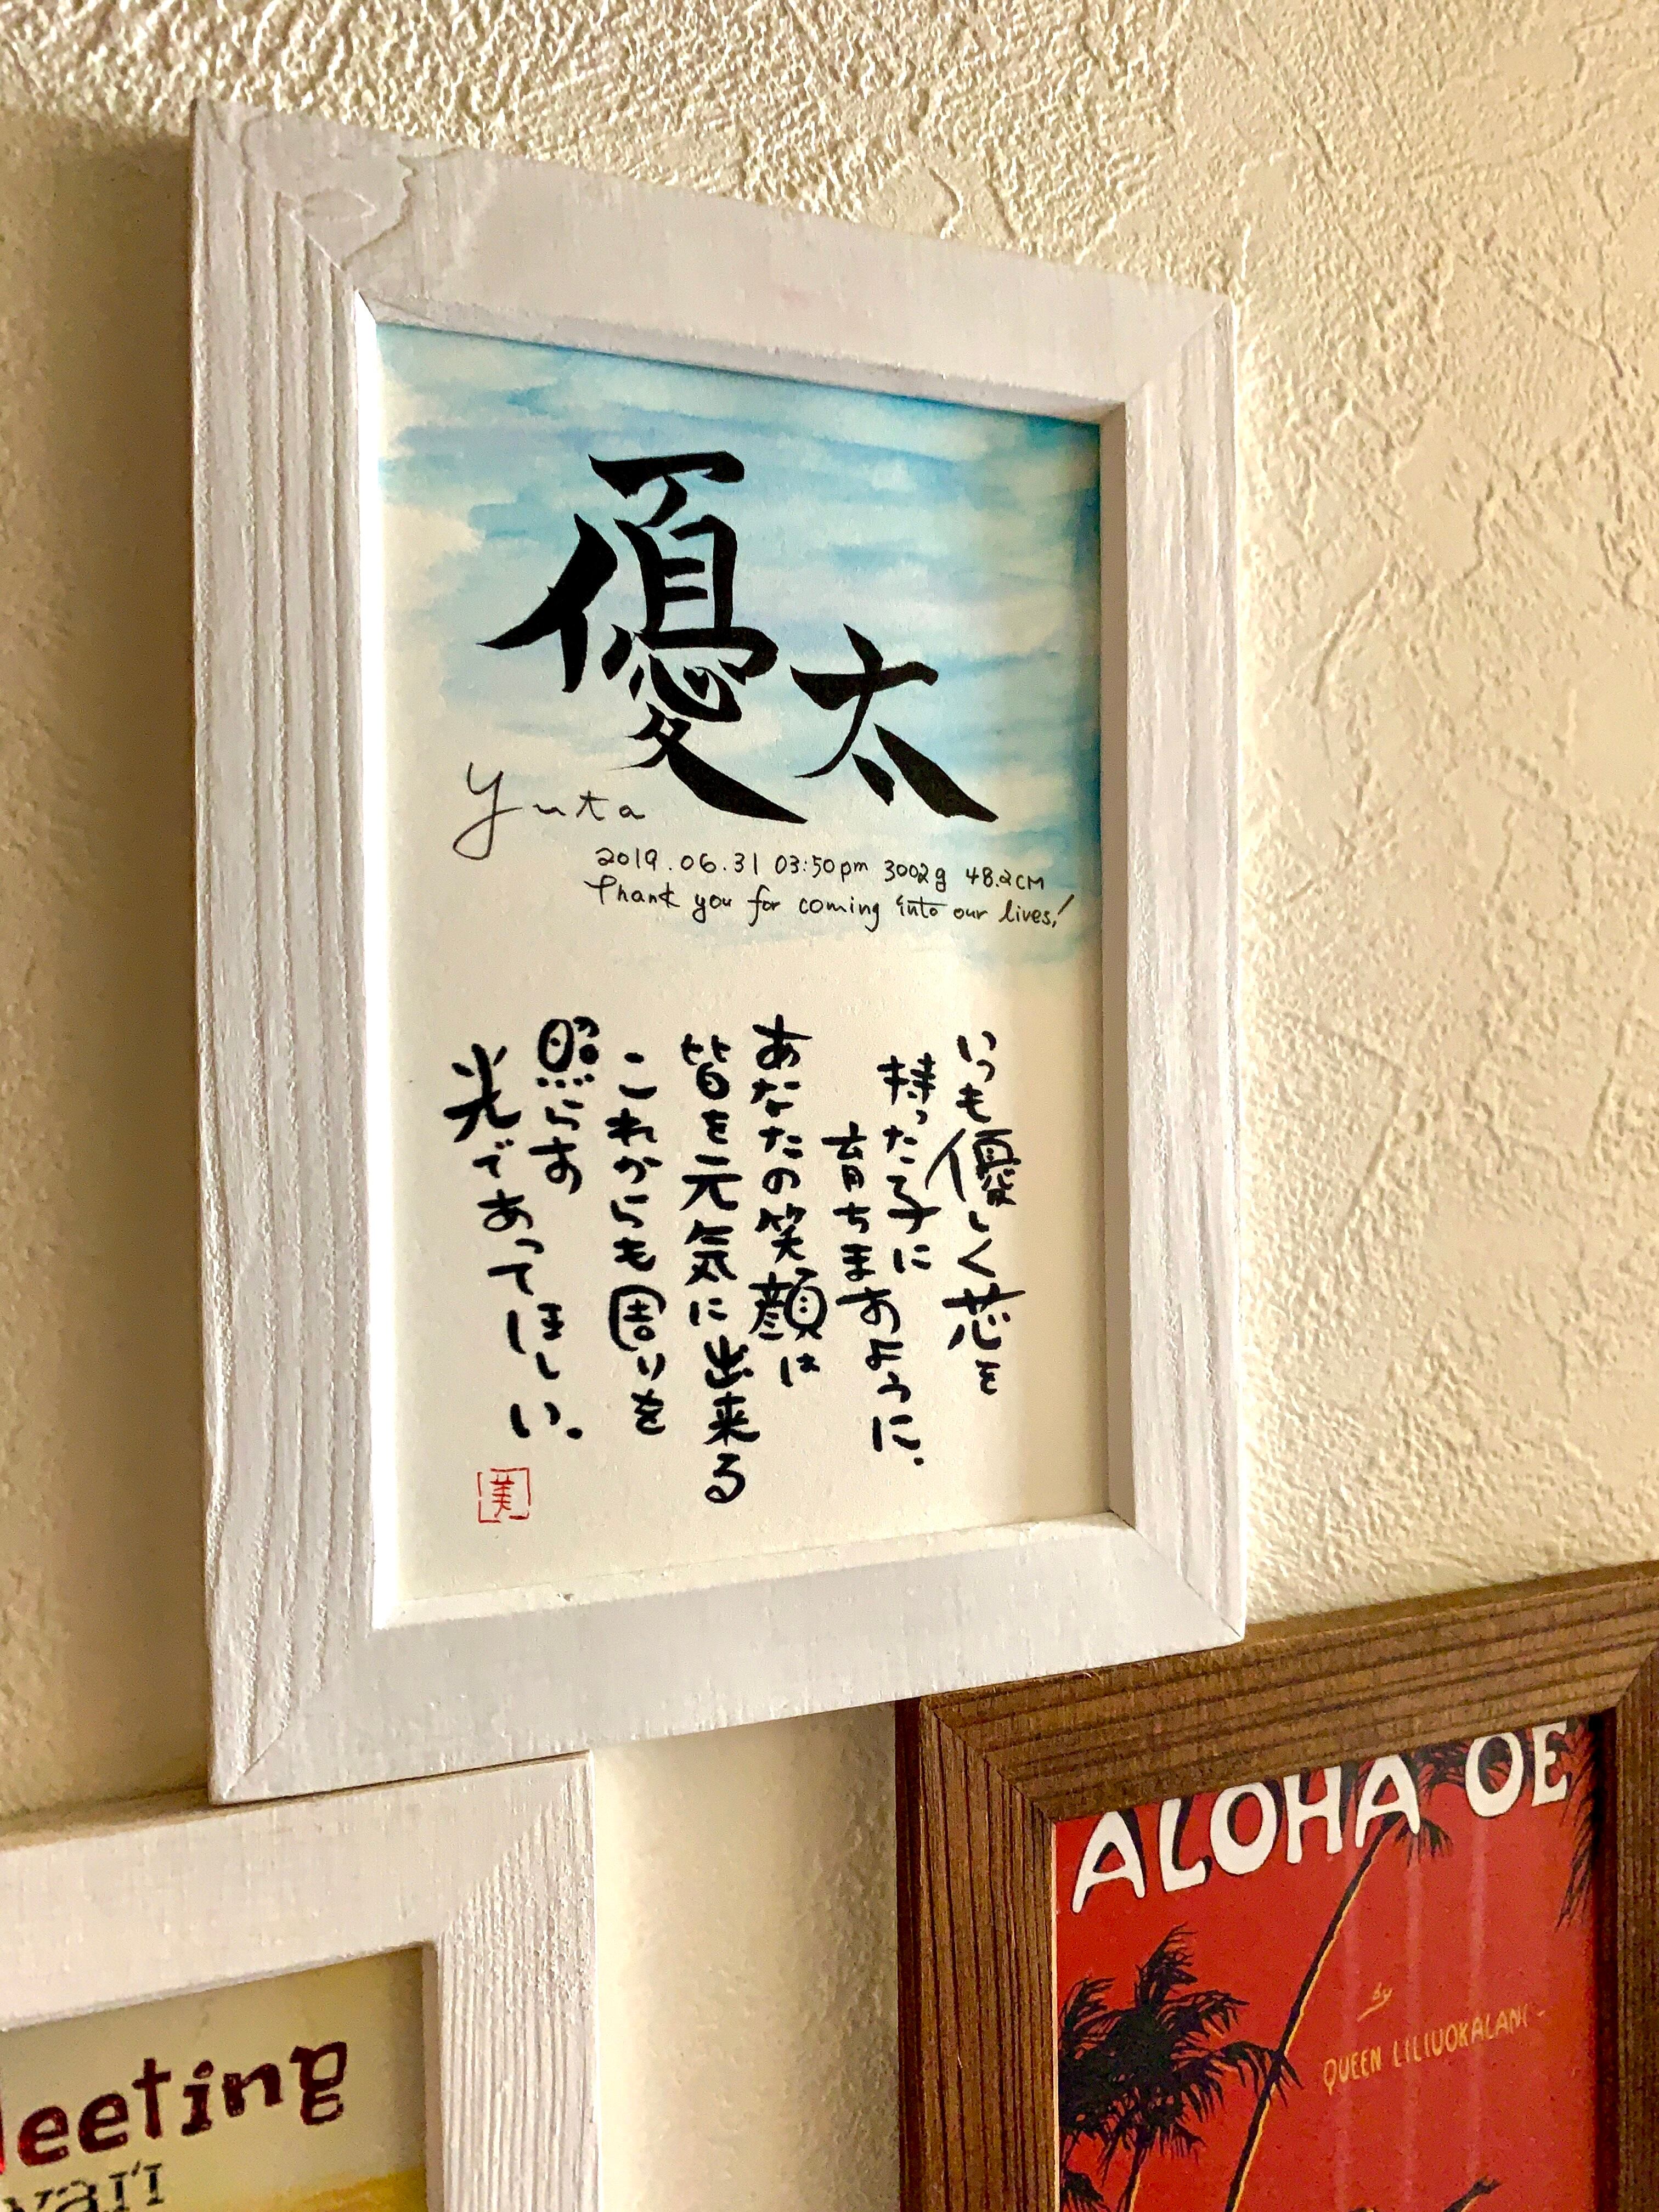 優太
Yuta
2019.06.31 03:50pm 3002g 48.2cm
Thank you for coming into our lives!
いつも優しく芯を
持った子に
育ちますように。
あなたの笑顔は
皆を元気に出来る
これからも周りを
照らす
光であってほしい。
美
ALOHA OE
by
QUEEN LILIUOKALANI
eeting